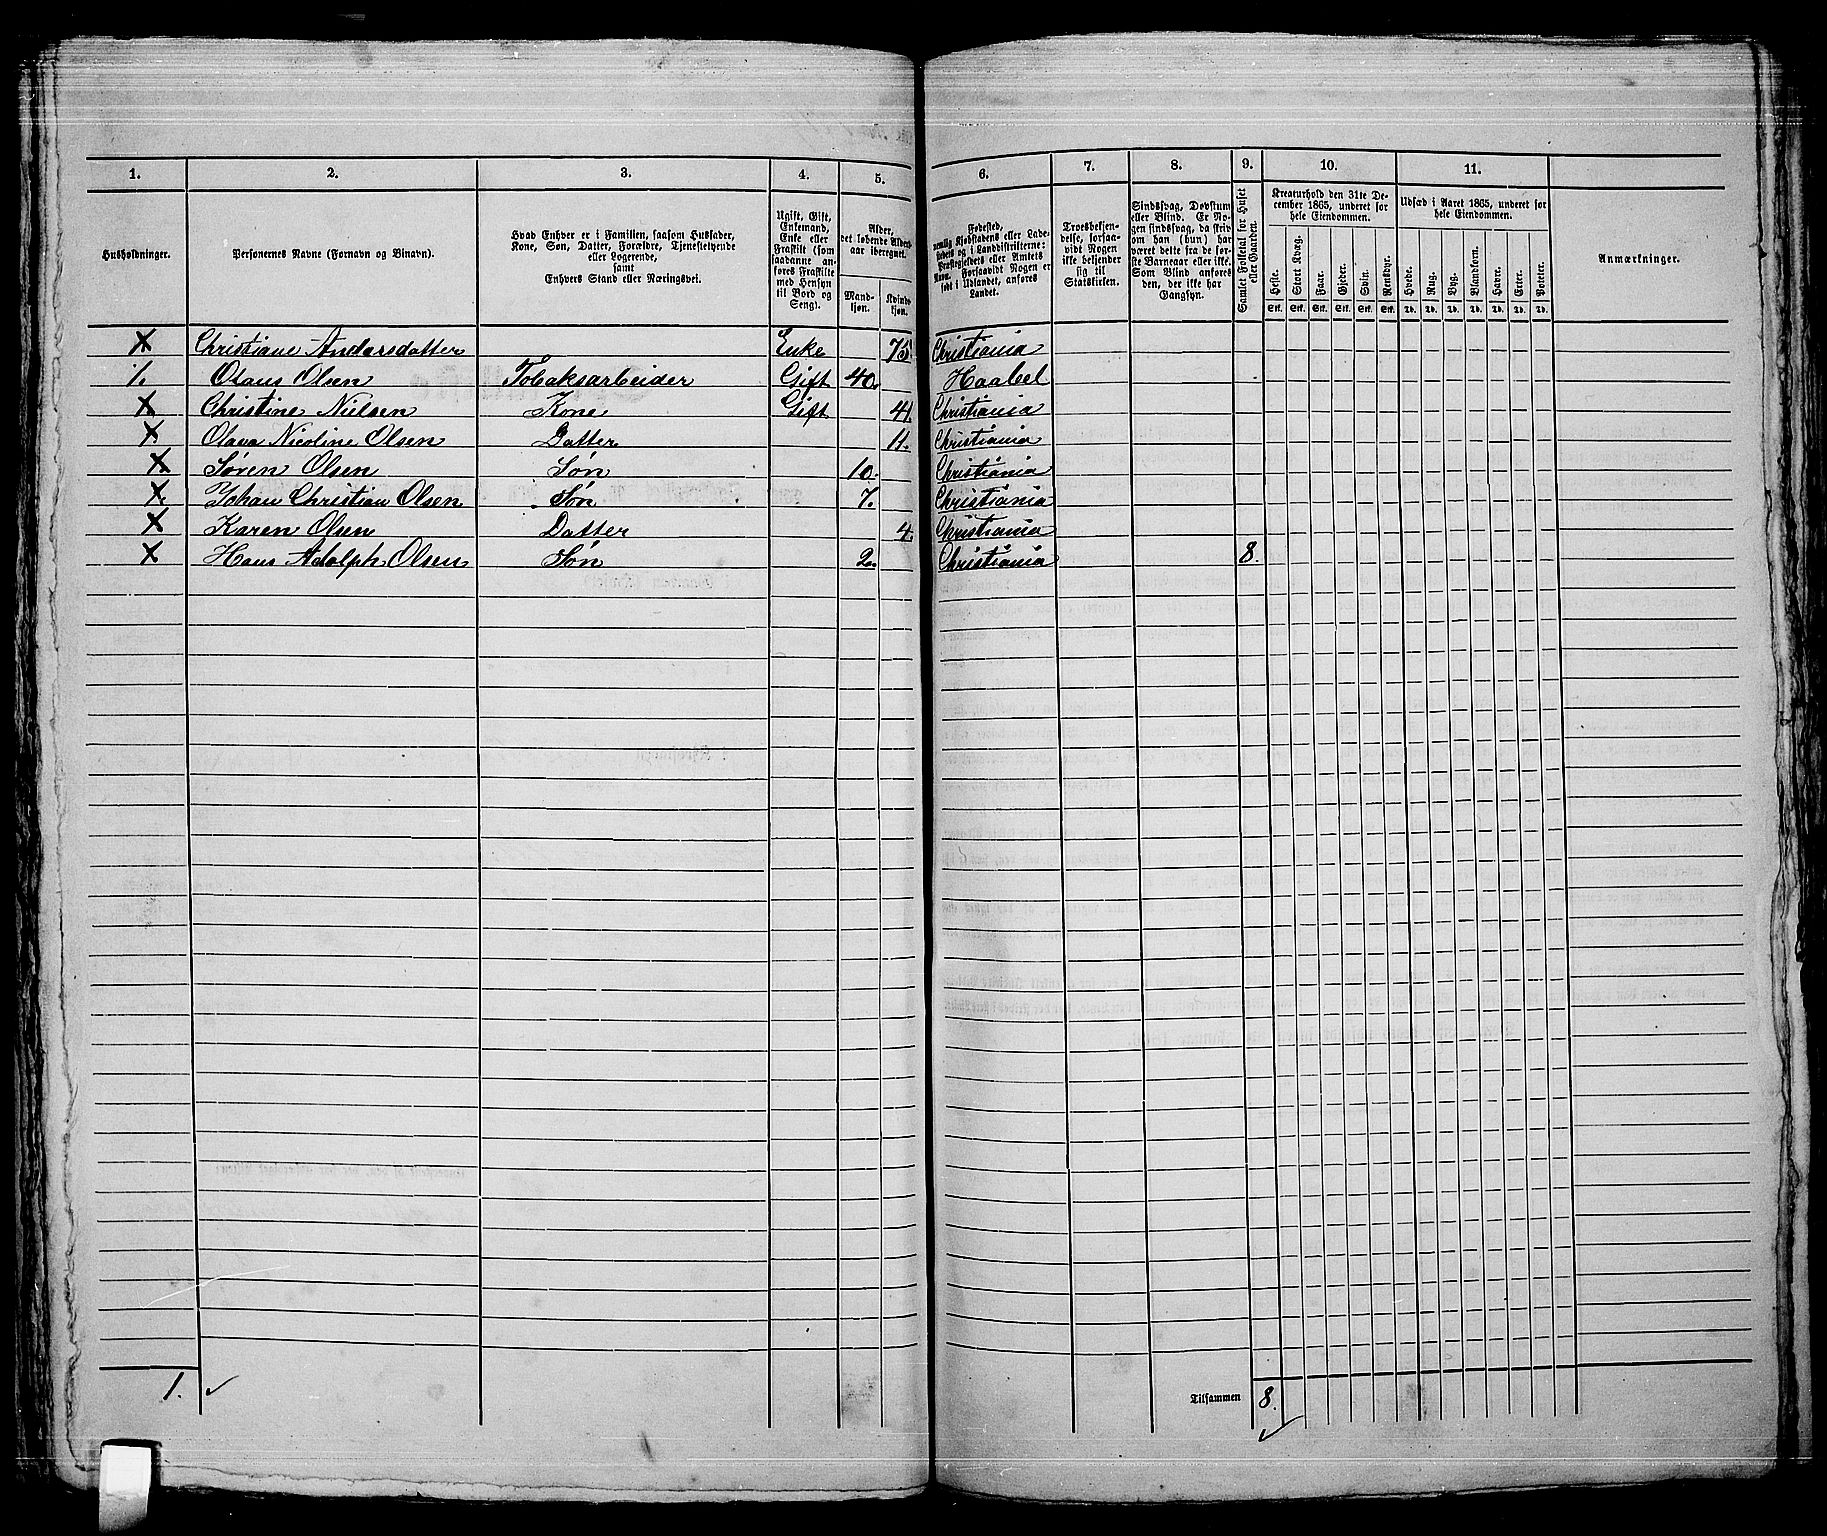 1. 2. 3. 4. 5. 6. 7. 8. 9. 10. 11.
Husholdninger.
Personernes Navne (Fornavn og Binavn).
Hvad Enhver er i Familien, saasom Husfader,
Kone, Søn, Datter, Forældre, Tjenestetyende
eller Logerende,
samt
Enhvers Stand eller Næringsvei.
Ugift, Gift,
Enkemand,
Enke eller
Fraskilt (som
saadanne an-
føres Fraskilte
med Hensyn
til Bord og
Seng).
Alder,
det løbende Alders-
aar iberegnet.
Mand-
kjøn.
Kvinde-
kjøn.
Fødested,
nemlig Kjøbstadens eller Lade-
stedets og i Landdistrikterne:
Præstegjeldets eller Amtets
Navn. Forsaavidt Nogen er
født i Udlandet, anføres
Landet.
Troesbekjen-
delse, forsaa-
vidt Nogen
ikke bekjender
sig til
Statskirken.
Sindssvag, Døvstum
eller Blind. Er No-
gen sindssvag, da skriv
om han (hun) har
været dette fra de før-
ste Barneaar eller ikke.
Som Blind anføres
den, der ikke har
Gangsyn.
Samlet Folketal for Huset
eller Gaarden.
Kreaturhold den 31te De-
cember 1865, underet for
hele Eiendommen.
Heste. Stort Kvæg. Faar. Gjeder. Svin. Rensdyr.
Stk. Stk. Stk. Stk. Stk. Stk.
Udsæd i Aaret 1865, underet for
hele Eiendommen.
Hvede. Rug. Byg. Blandkorn. Havre. Erter. Poteter.
Td. Td. Td. Td. Td. Td. Td.
Anmærkninger.
X Christiane Andersdatter Enke 75 Christiania
1. Olaus Olsen Tobaksarbeider Gift 40. Haabel
X Christine Nielsen Kone Gift 41. Christiania
X Olava Nicoline Olsen Datter 11. Christiania
X Søren Olsen Søn 10. Christiania
X Johan Christian Olsen Søn 7. Christiania
X Karen Olsen Datter 4. Christiania
X Hans Adolph Olsen Søn 2. Christiania 8.
1. ✓ Tilsammen 8. ✓